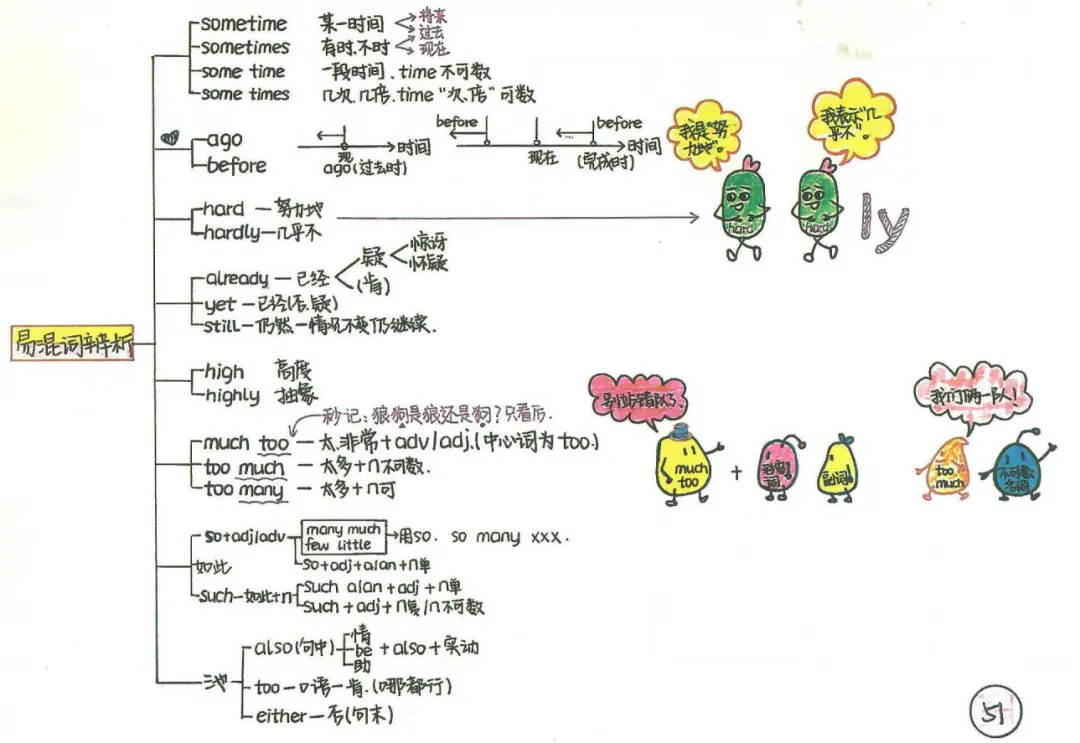 sometime 某一时间 将来 过去
sometimes 有时.不时 现在
some time 一段时间.time不可数
some times 几次.几倍.time“次.倍”可数
ago
before
现 时间
ago(过去时)
before before
现在 (完成时) 时间
我是“努力地”。
我表示“几乎不”。
hard —努力地
hardly—几乎不
hard hard ly
already —已经 疑 惊讶 怀疑 (肯)
yet —已经(否.疑)
still—仍然—情况不变仍继续.
易混词辨析
high 高度
highly 抽象
秒记:狼狗是狼还是狗?只看后.
much too —太.非常+adv/adj.(中心词为too.)
too much —太多+n不可数.
too many —太多+n可
别站错队了.
much too + 形容词 副词
我们俩一队!
too much 不可数名词
如此
so+adj/adv many much few little 用so. so many xxx.
so+adj+a/an+n单
such—如此+n such a/an+adj+n单
such+adj+n复/n不可数
也
also(句中) 情 be 助 +also+实动
too—口语—肯.(哪都行)
either—否(句末)
51